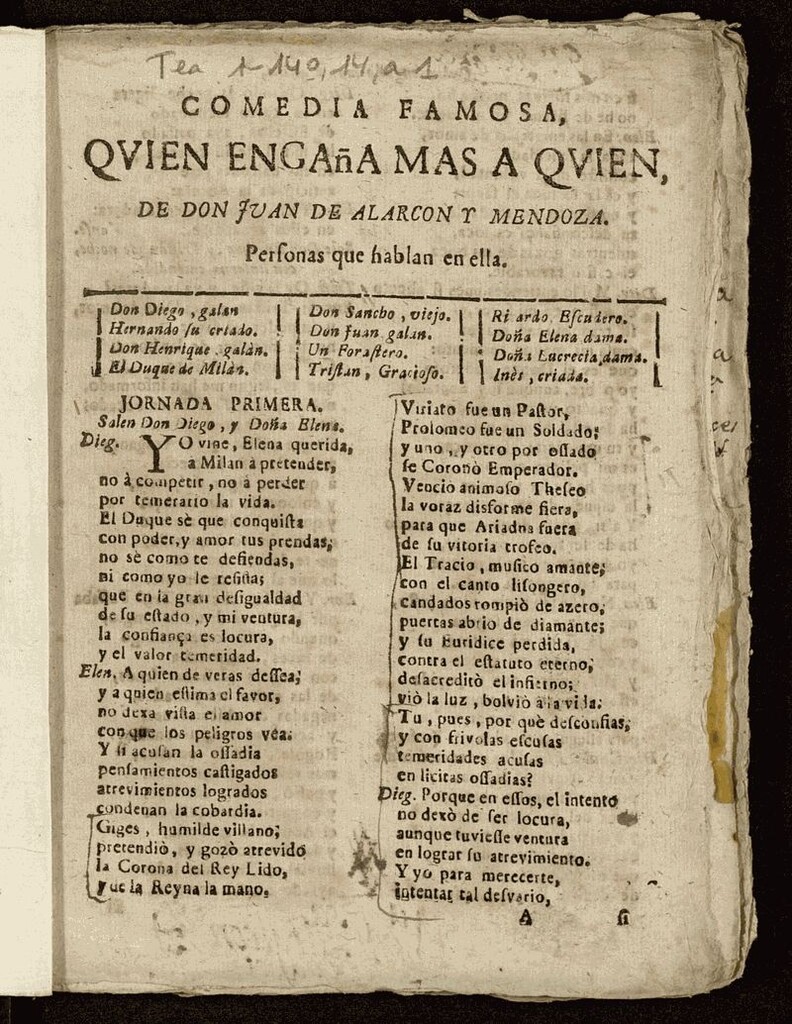 Tea 1-14º, 14, a 1
COMEDIA FAMOSA,
QVIEN ENGAñA MAS A QVIEN,
DE DON JUAN DE ALARCON Y MENDOZA.
Perſonas que hablan en ella.
Don Diego, galan
Hernando ſu criado.
Don Henrique, galàn.
El Duque de Milàn.
Don Sancho, viejo.
Don Juan, galan.
Un Foraſtero.
Triſtan, Gracioſo.
Ri ardo Eſcudero.
Doña Elena dama.
Doña Lucrecia, dama.
Inès, criada.
JORNADA PRIMERA.
Salen Don Diego, y Doña Elena.
Dieg. YO vine, Elena querida,
a Milan à pretender,
no à competir, no à perder
por temerario la vida.
El Duque sè que conquiſta
con poder, y amor tus prendas;
no sè como te defiendas,
ni como yo le reſiſta;
que en la gran deſigualdad
de ſu eſtado, y mi ventura,
la confiança es locura,
y el valor temeridad.
Elen. A quien de veras deſſea;
y a quien eſtima el favor,
no dexa viſta el amor
con que los peligros vea:
Y ſi acuſan la oſſadia
penſamientos caſtigados
atrevimientos logrados
condenan la cobardia.
Giges, humilde villano;
pretendiò, y gozò atrevido
la Corona del Rey Lido,
que la Reyna la mano.
Viriato fue un Paſtor,
Prolomeo fue un Soldado;
y uno, y otro por oſſado
ſe Coronò Emperador.
Venciò animoſo Theſeo
la voraz disforme fiera,
para que Ariadna fuera
de ſu vitoria trofeo.
El Tracio, muſico amante;
con el canto liſongero,
candados rompiò de azero,
puertas abrio de diamante;
y ſu Euridice perdida,
contra el eſtatuto eterno;
deſacreditò el infierno;
viò la luz, bolviò à la vida:
Tu, pues, por què deſconfias;
y con frivolas eſcuſas
temeridades acuſas
en licitas oſſadias?
Dieg. Porque en eſſos, el intento
no dexò de ſer locura,
aunque tuvieſſe ventura
en lograr ſu atrevimiento.
Y yo para merecerte,
intentar tal deſvario,
A ſi